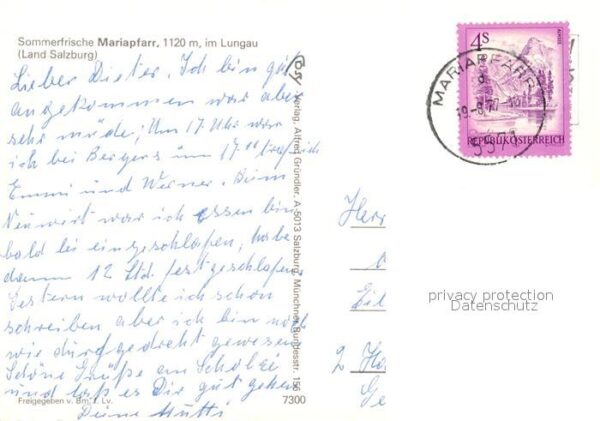 Sommerfrische Mariapfarr, 1120 m, im Lungau
(Land Salzburg)
Lieber Dieter, Ich bin gut
angekommen war aber
sehr müde, Um 17 Uhr war
ich bei Bergers um 17.11 traf ich
Emmi und Werner. Beim
Neuwirt war ich essen bin
bald bei eingeschlafen, habe
dann 12 Std. fest geschlafen.
Gestern wollte ich schon
schreiben aber ich bin noch
wie durchgedreht gewesen.
Schöne Grüße an
und laß es Dir gut gehen
Deine Mutti
Freigegeben v. Bm. f. Lv.
7300
Verlag Alfred Gründler, A-5013 Salzburg, Münchner Bundesstr. 156
4S
REPUBLIK ÖSTERREICH
MARIAPFARR
19.-8.77-10
5571
Herr
2
privacy protection
Datenschutz